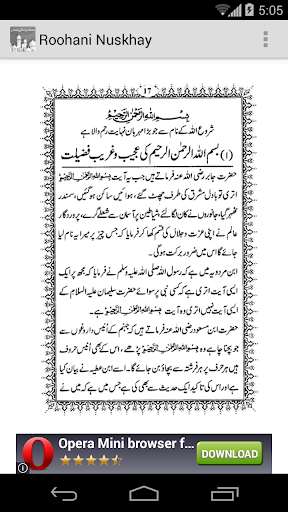 5:05
Roohani Nuskhay
17
بسم الله الرحمن الرحيم
شروع اللہ کے نام سے جو بڑا مہربان نہایت رحم والا ہے
(۱) بسم اللہ الرحمٰن الرحیم کی عجیب و غریب فضیلت
حضرت جابر رضی اللہ عنہ فرماتے ہیں جب یہ آیت بسم الله الرحمن الرحيم
اتری تو بادل مشرق کی طرف چھٹ گئے، ہوائیں ساکن ہوگئیں، سمندر
ٹھہر گیا، جانوروں نے کان لگا لئے، شیاطین پر آسمان سے شعلے گرے، پروردگار
عالم نے اپنی عزت و جلال کی قسم کھا کر فرمایا کہ جس چیز پر میرا یہ نام لیا
جائے گا اس میں ضرور برکت ہوگی۔
ابن مردویہ میں ہے کہ رسول اللہ صلی اللہ علیہ وسلم نے فرمایا کہ مجھ پر ایک
ایسی آیت اتری ہے کہ کسی نبی پر سوائے حضرت سلیمان علیہ السلام کے
ایسی آیت نہیں اتری، وہ آیت بسم الله الرحمن الرحيم ہے۔
حضرت ابن مسعود رضی اللہ عنہ فرماتے ہیں کہ جہنم کے انیس داروغوں سے
جو بچنا چاہے وہ بسم الله الرحمن الرحيم پڑھے، اس کے بھی انیس حروف
ہیں ہر حرف ہر فرشتے سے بچاؤ بن جائے گا۔ اسے ابن عطیہ نے بیان کیا
ہے اور اس کی تائید ایک حدیث سے بھی کی ہے جس میں ہے کہ میں نے
Opera Mini browser f...
DOWNLOAD